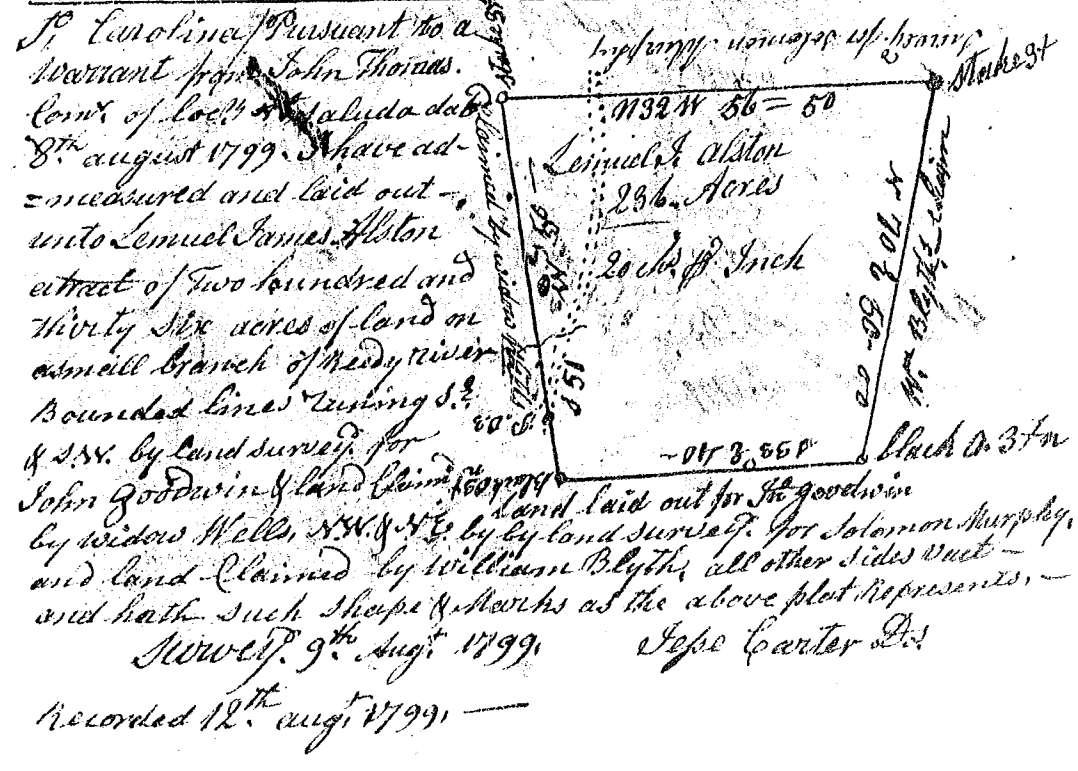 So, Carolina / Pursuant to a
warrant from John Thomas.
Comr. of Locn Saluda dat
8th august 1799. I have ad-
=measured and laid out
unto Lemuel James Alston
a tract of Two hundred and
thirty Six acres of land on
a small branch of Reedy River
Bounded lines Runing S.E
& S.W. by land survey.d for
John Goodwin & land Claim.d
by widow Wells, N.W. & N.E. by by land survey.d for Solomon Murphy,
and land Claimed by William Blyth, all other sides vact
and hath such shape & Marks as the above plat Represents,
Survey.d 9th Augt 1799.
Jesse Carter D.s
Recorded 12th augt, 1799,
Survey.d for Solomon Murphy
Stake 3t
N32 W 56 = 50
Lemuel J. Alston
236 Acres
20 chs pr. Inch
claimed by widow Wells
S 51
N 70 E 50
Wm Blyth's Claim
black o. 3t n
S 55 E 40
Land laid out for Jno Goodwin